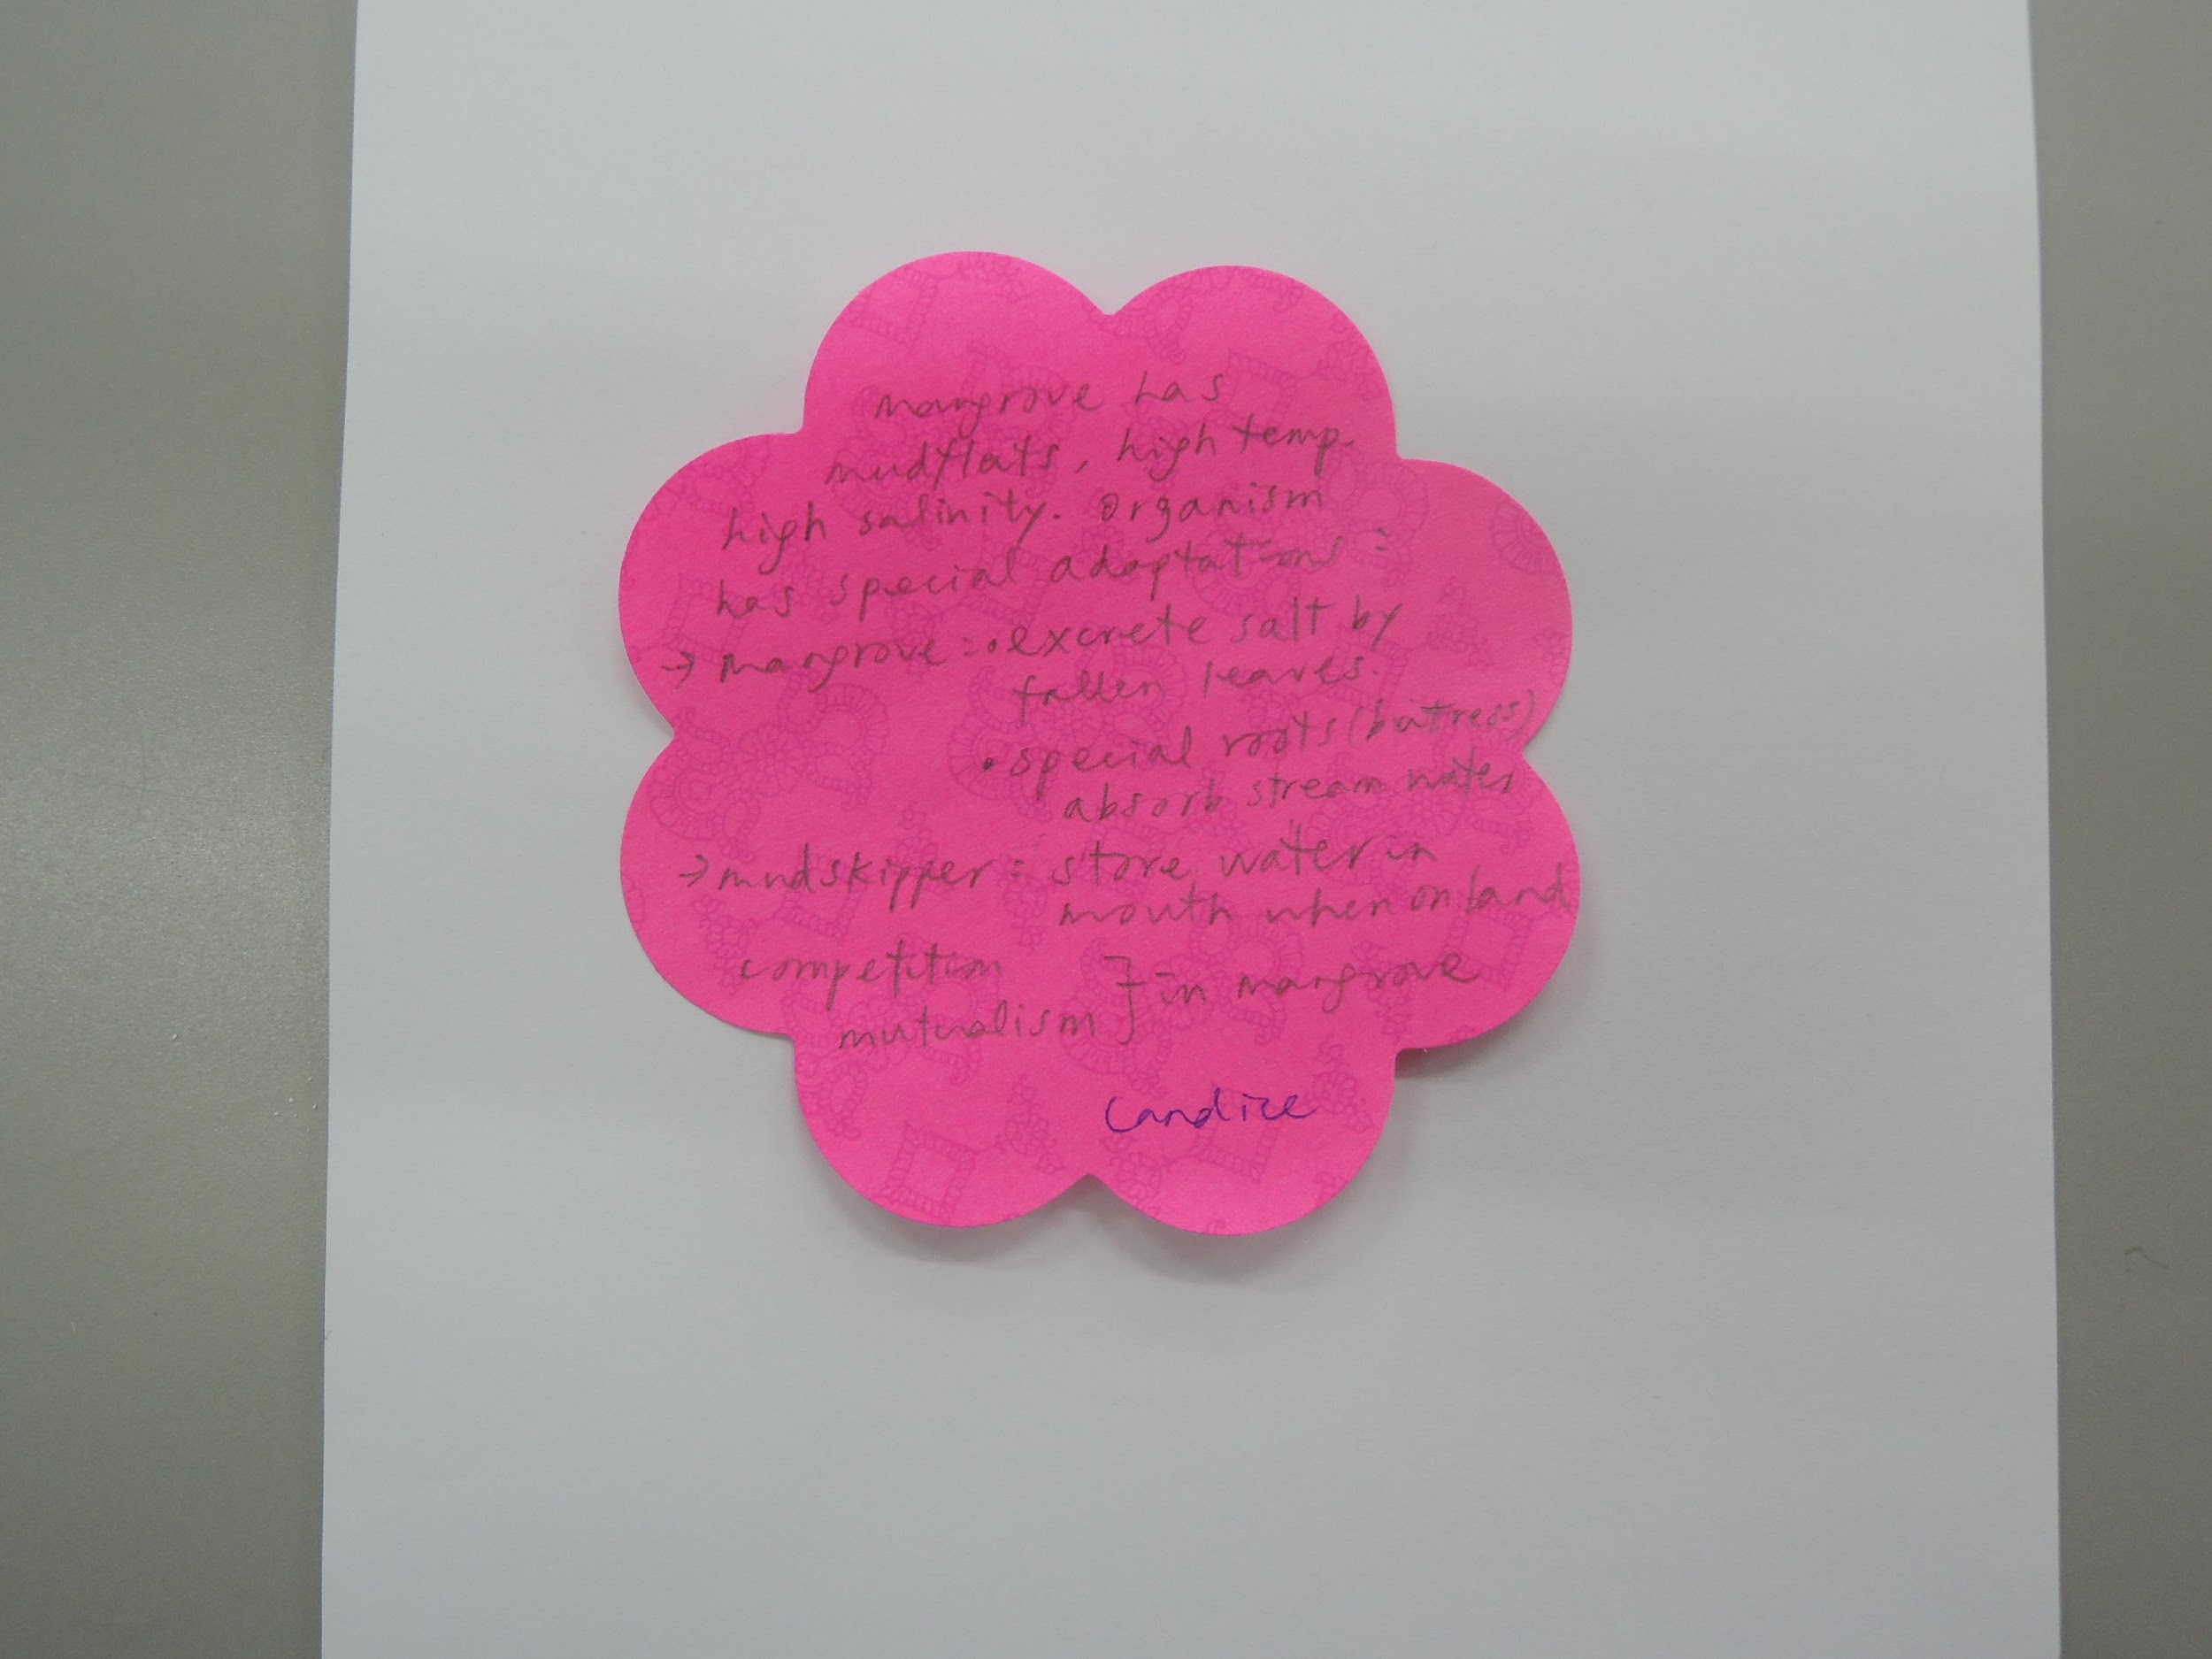 mangrove has
mudflats, high temp.
high salinity. organism
has special adaptations:
→ mangrove: • excrete salt by
fallen leaves.
• special roots (butress)
absorb stream water
→ mudskipper: store water in
mouth when on land
competition
mutualism } in mangrove
Candice